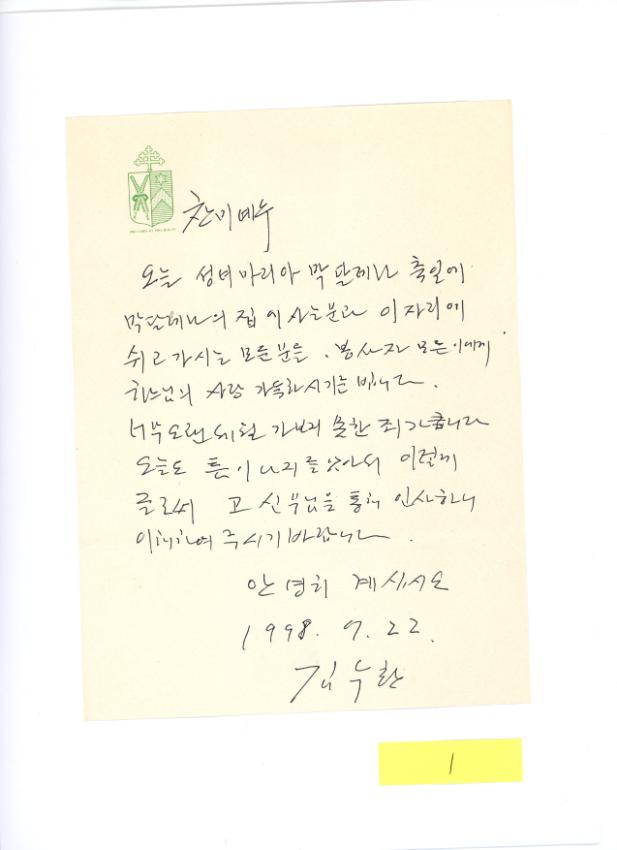 찬미예수
오늘 성녀마리아 막달레나 축일에
막달레나의 집에 사는분과 이 자리에
쉬고 가시는 모든분들, 봉사자 모든이에게
하느님의 사랑 가득하시기를 빕니다.
너무 오랜 세월 가보지 못한 죄가 큽니다
오늘도 틈이 나지를 않아서 이렇게
글로써 고 신부님을 통해 인사하니
이해하여 주시기 바랍니다.
안녕히 계십시오
1998. 7. 22.
김수환
1